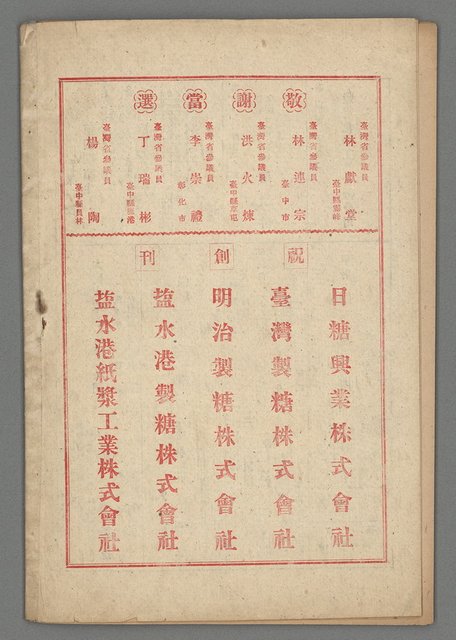 敬謝當選
臺灣省參議員
林獻堂
臺中縣霧峰
臺灣省參議員
林連宗
臺中市
臺灣省參議員
洪火煉
臺中縣草屯
臺灣省參議員
李崇禮
彰化市
臺灣省參議員
丁瑞彬
臺中縣鹿港
臺灣省參議員
楊陶
臺中縣員林
祝創刊
日糖興業株式會社
臺灣製糖株式會社
明治製糖株式會社
塩水港製糖株式會社
塩水港紙漿工業株式會社